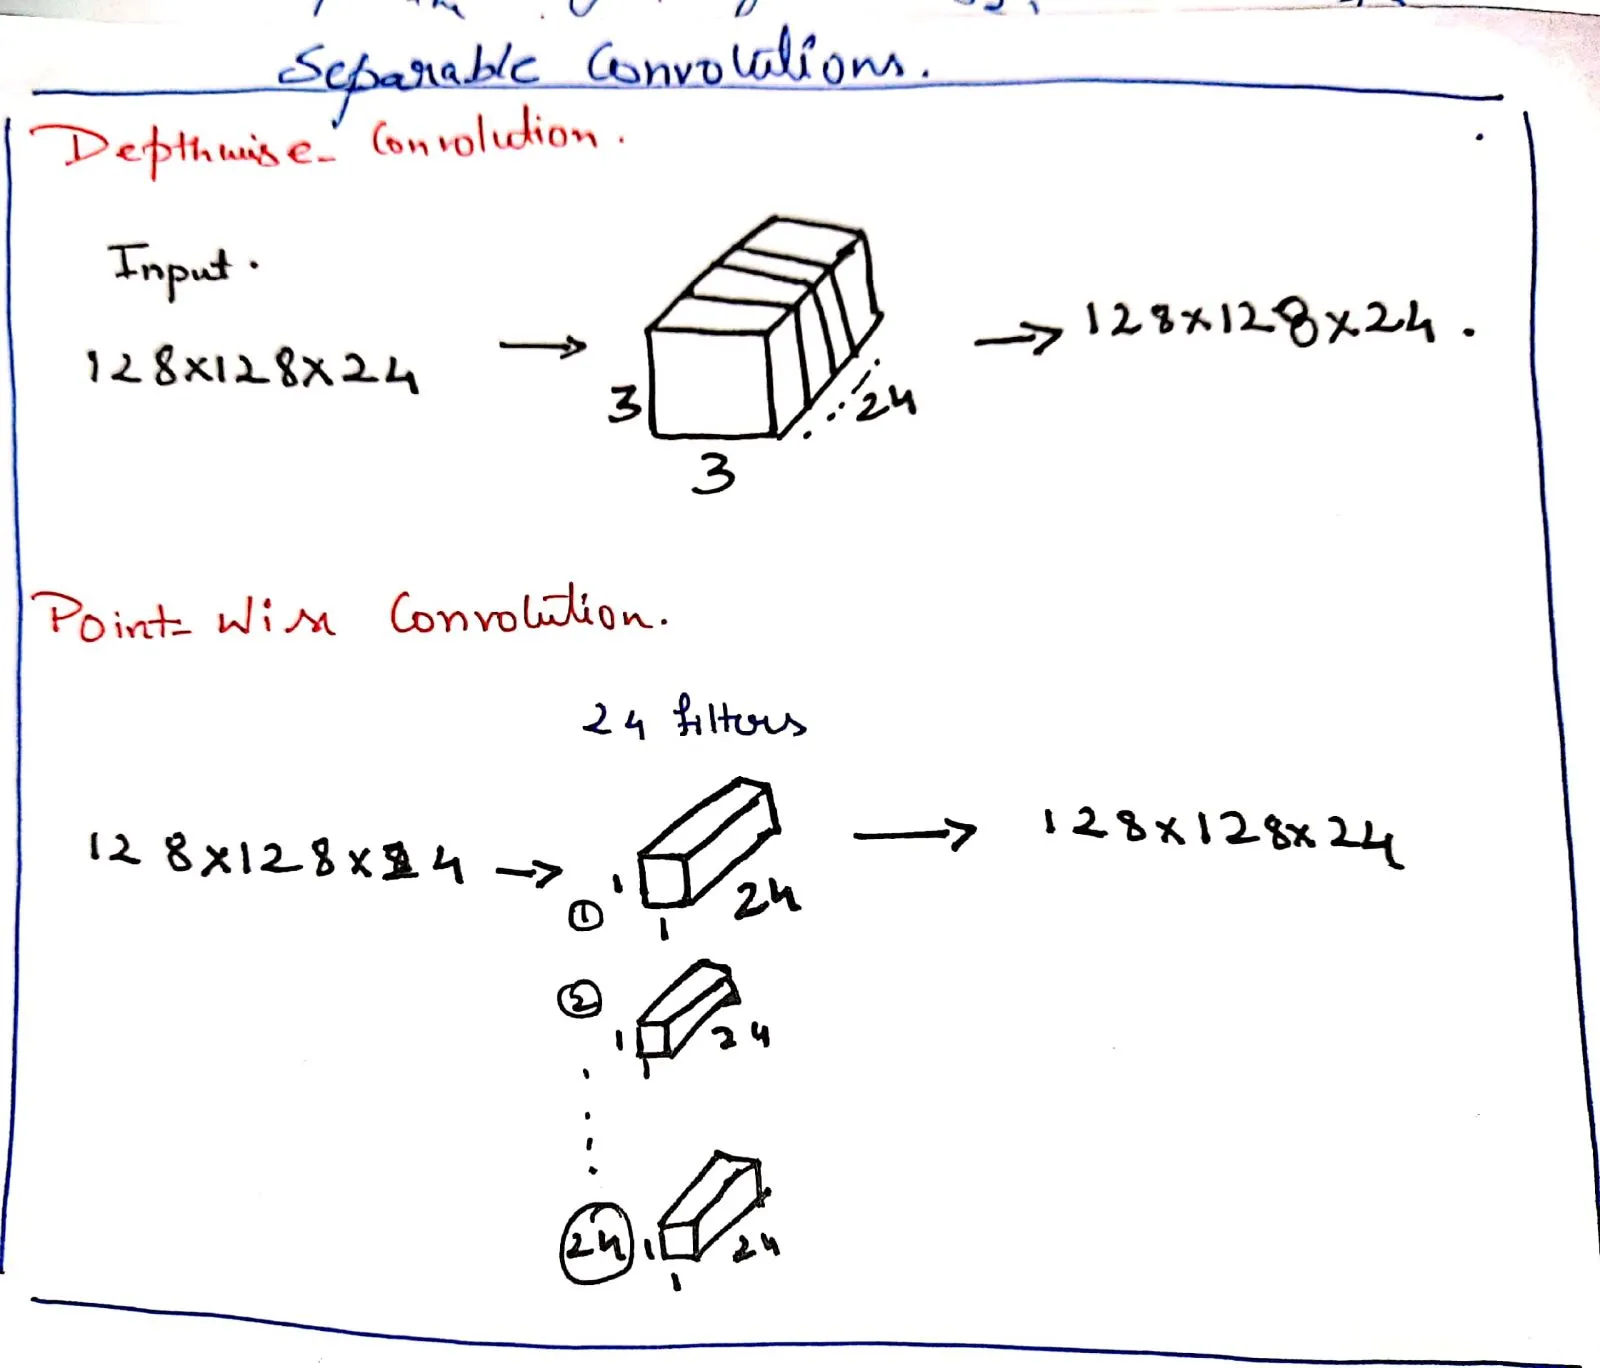 Separable Convolutions.
Depthwise- Convolution.
Input.
128x128x24 → 3 3 24 → 128x128x24.
Point-Wise Convolution.
24 filters
128x128x24 → ① 1 1 24 → 128x128x24
② 1 1 24
24 1 1 24